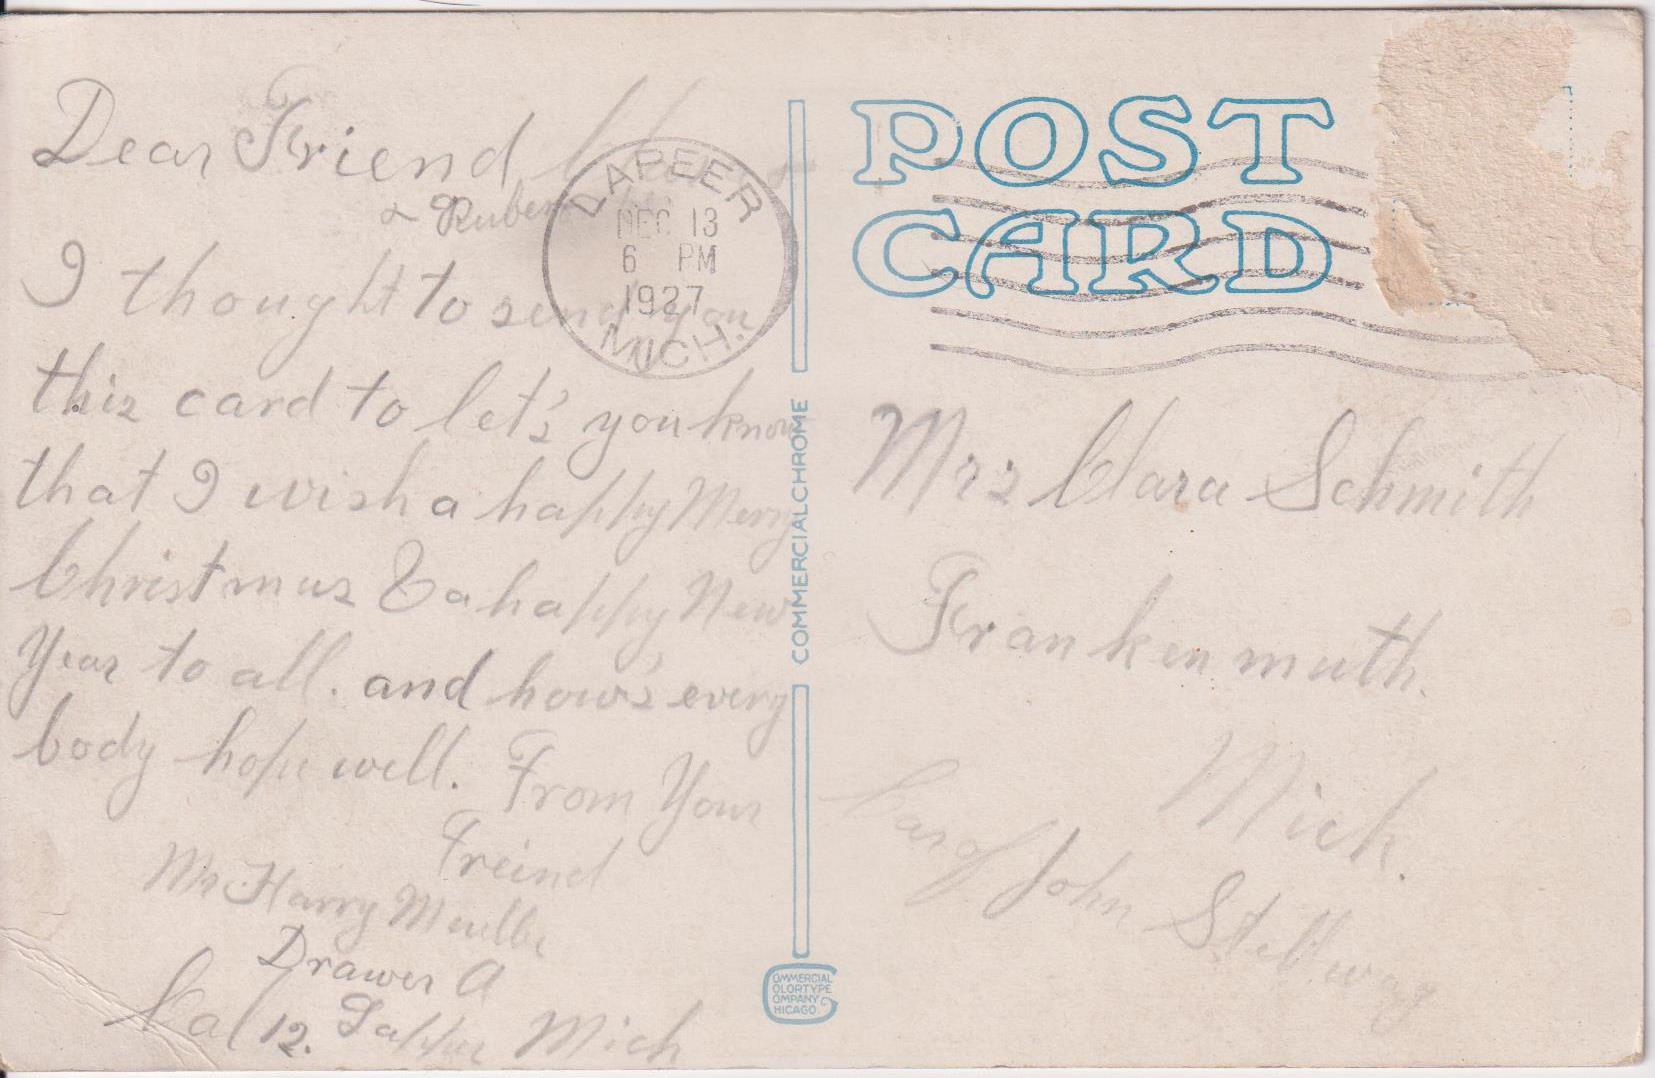 Dear Friend
& Ruben
I thought to send you
this card to let's you know
that I wish a happy Merry
Christmas & a happy New
Year to all. and how's every
body hope well. From Your
Freind
Mr. Harry Mueller
Drawer A
12. Lapeer Mich
LAPEER
DEC 13
6 PM
1927
MICH.
COMMERCIALCHROME
COMMERCIAL
COLORTYPE
COMPANY
CHICAGO
POST
CARD
Mrs Clara Schmith
Frankenmuth.
Mich.
Car of John Stellwag